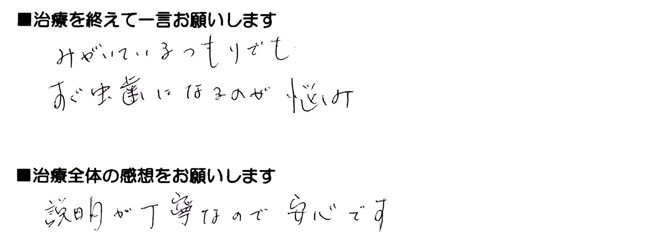 ■治療を終えて一言お願いします
みがいているつもりでも
すぐ虫歯になるのが悩み
■治療全体の感想をお願いします
説明が丁寧なので安心です